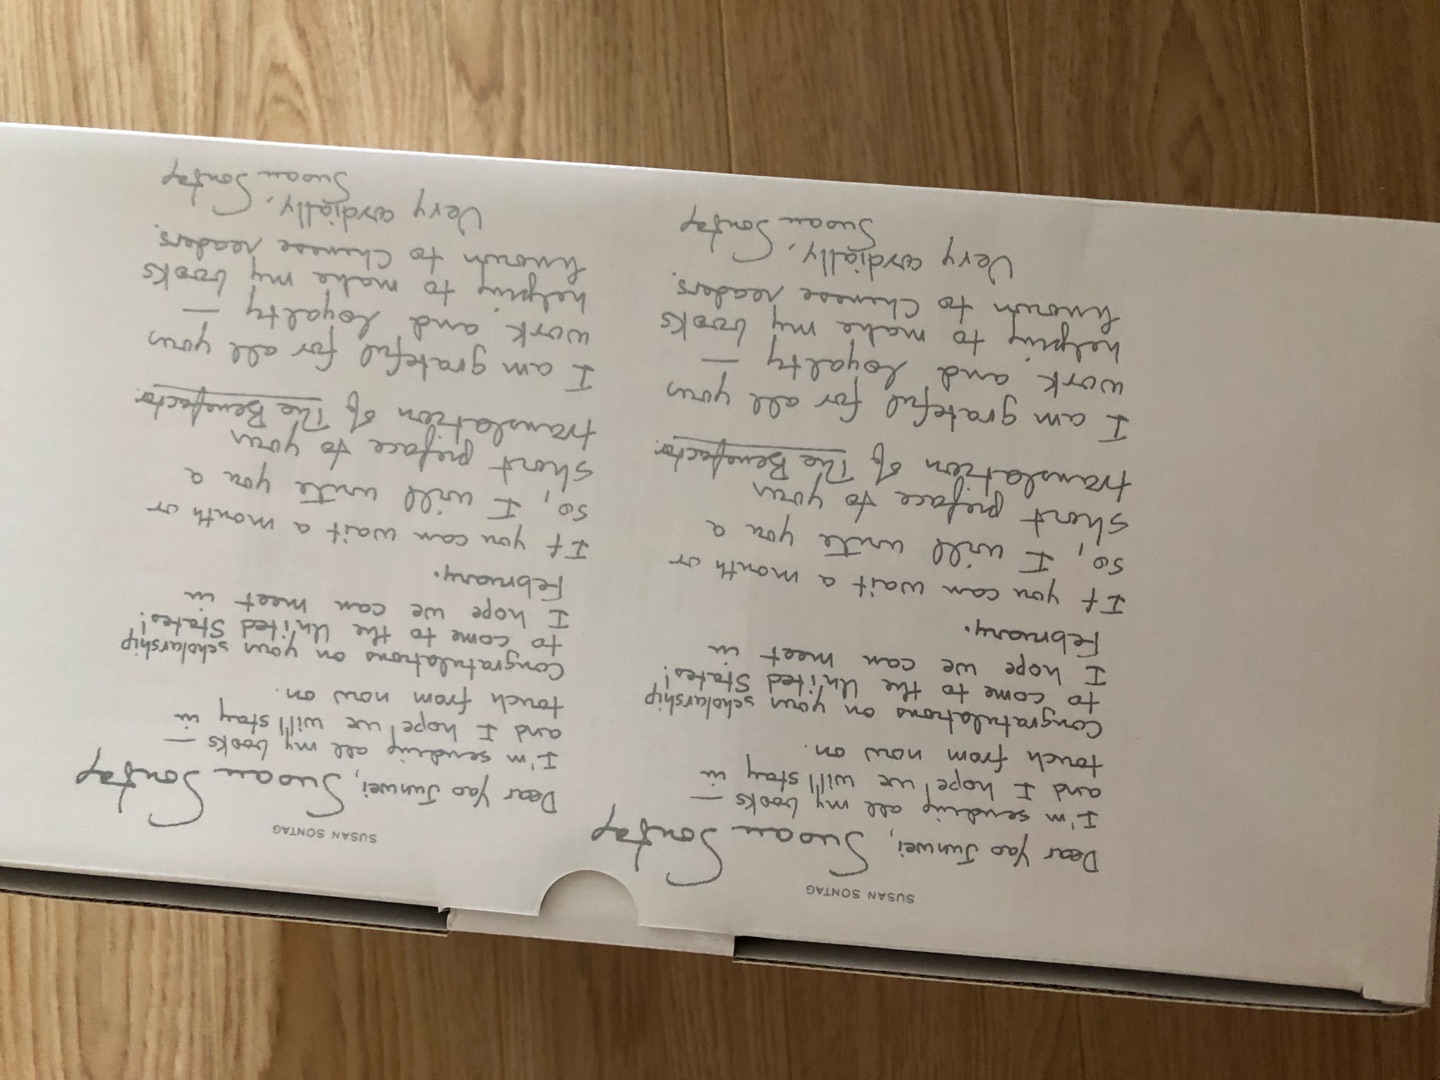 SUSAN SONTAG
Susan Sontag
Dear Yao Junwei,
I'm sending all my books —
and I hope we will stay in
touch from now on.
Congratulations on your scholarship
to come to the United States!
I hope we can meet in
February.
If you can wait a month or
so, I will write you a
short preface to your
translation of The Benefactor.
I am grateful for all your
work and loyalty —
helping to make my books
known to Chinese readers.
Very cordially,
Susan Sontag
SUSAN SONTAG
Susan Sontag
Dear Yao Junwei,
I'm sending all my books —
and I hope we will stay in
touch from now on.
Congratulations on your scholarship
to come to the United States!
I hope we can meet in
February.
If you can wait a month or
so, I will write you a
short preface to your
translation of The Benefactor.
I am grateful for all your
work and loyalty —
helping to make my books
known to Chinese readers.
Very cordially,
Susan Sontag